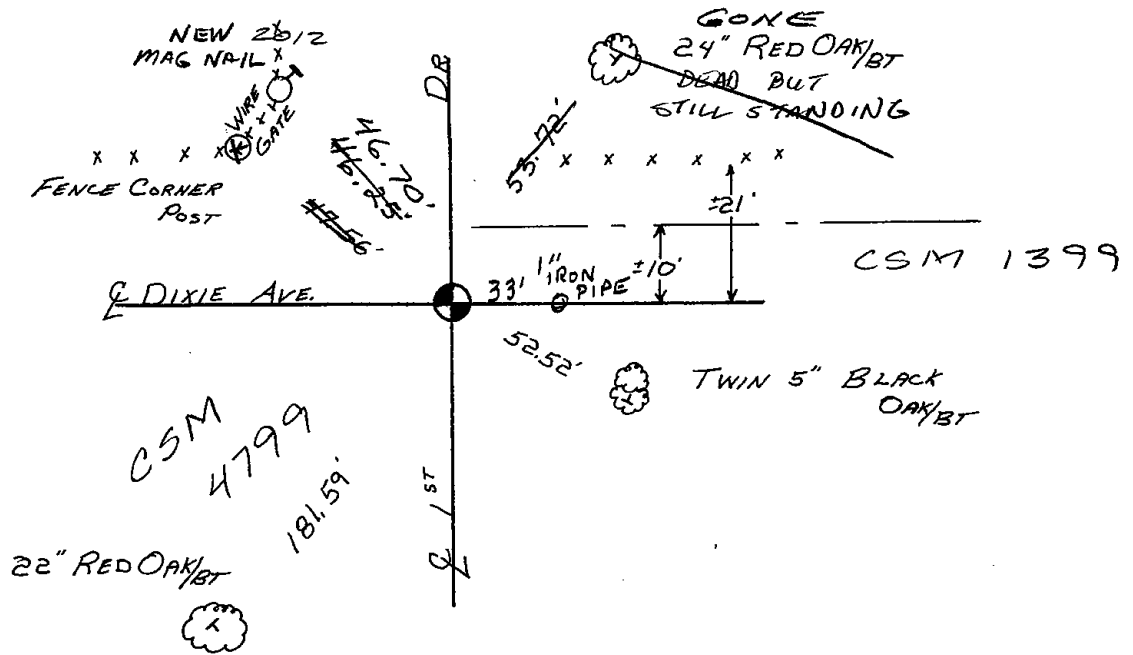 NEW 2012
MAG NAIL
WIRE
GATE
FENCE CORNER
POST
46.70'
46.25'
DR
GONE
24" RED OAK/BT
DEAD BUT
STILL STANDING
53.72'
±21'
±10'
CSM 1399
℄ DIXIE AVE.
33'
1"
IRON
PIPE
52.52'
TWIN 5" BLACK
OAK/BT
CSM
4799
181.59'
℄ 1ST
22" RED OAK/BT